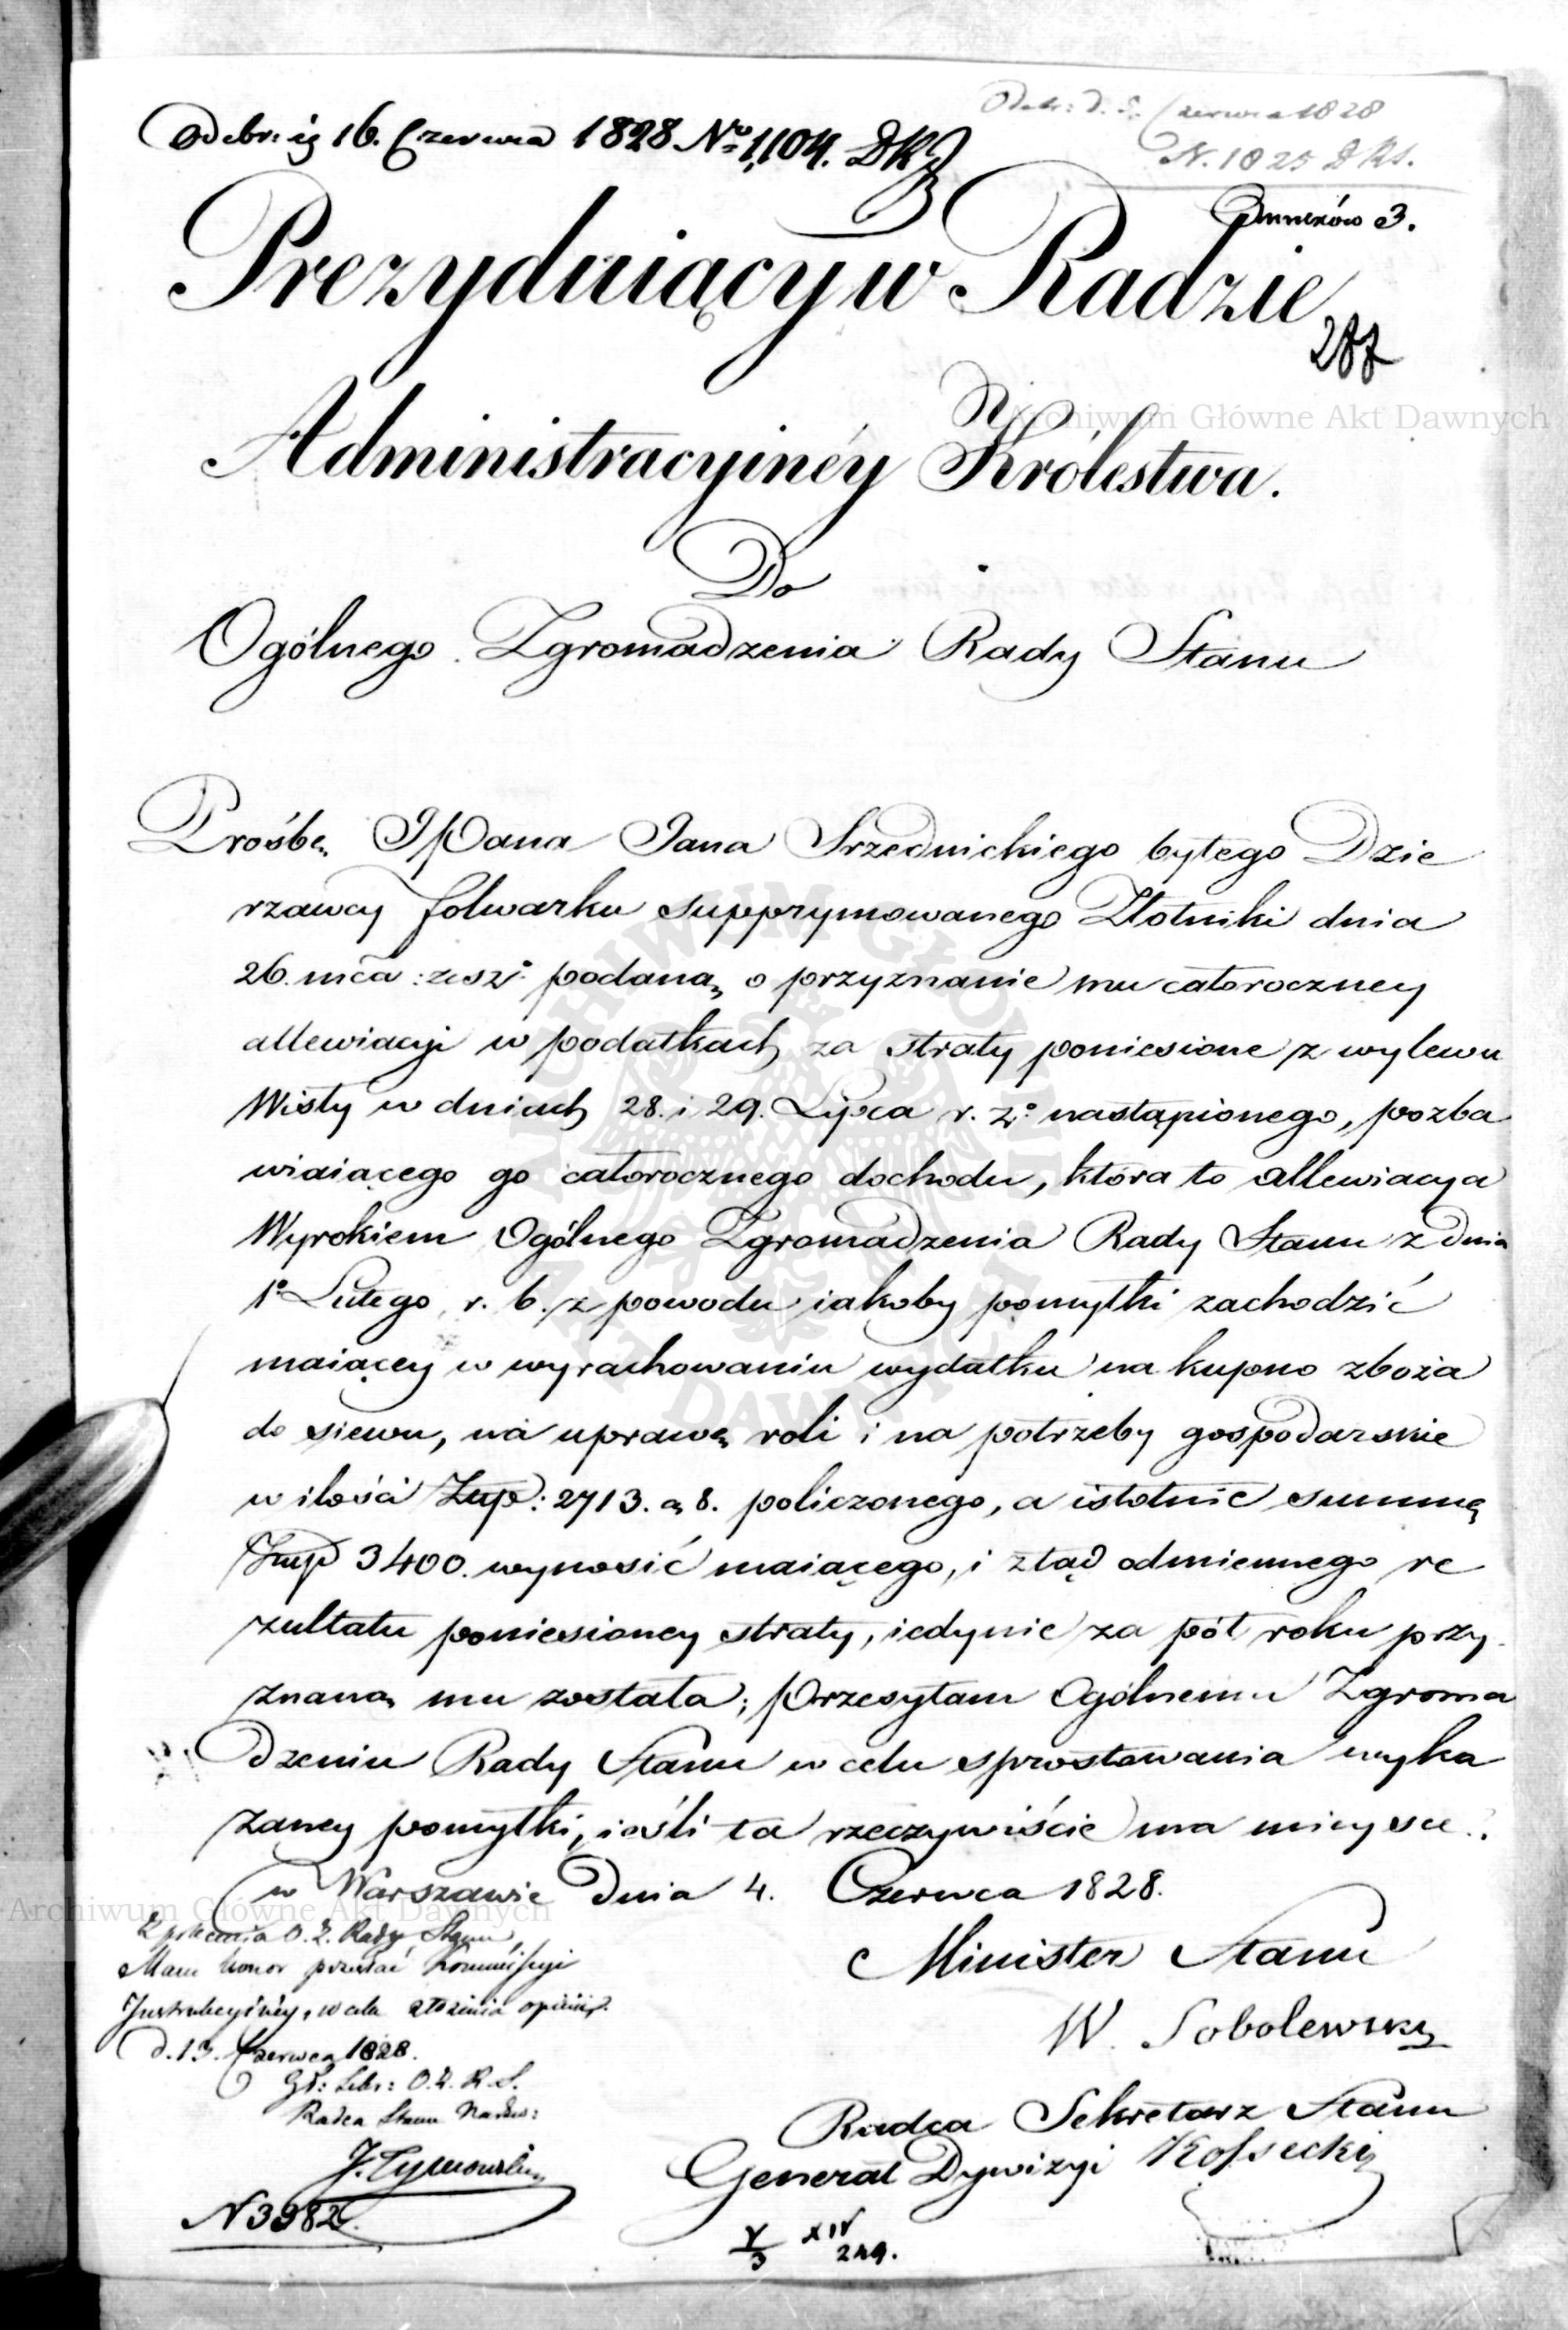 Odebr: ig 16. Czerwca 1828 No 1,104. DKS
Odebr: d. 5. Czerwca 1828
N. 1025 DKS.
Annexów 3.
Prezyduiący w Radzie
287
Administracyinéy Królestwa.
Do
Ogólnego Zgromadzenia Rady Stanu
Prośbę JPana Jana Srzednickiego byłego Dzie
rzawcy folwarku supprymowanego Złotniki dnia
26. mca: zesz: podaną, o przyznanie mu całoroczney
allewiacyi w podatkach za straty poniesione z wylewu
Wisły w dniach 28. i 29. Lipca r. z: nastąpionego, pozba
wiaiącego go całorocznego dochodu, która to allewiacya
Wyrokiem Ogólnego Zgromadzenia Rady Stanu z dnia
1o Lutego r. b. z powodu iakoby pomyłki zachodzić
maiącey w wyrachowaniu wydatku na kupno zboża
do siewu, na uprawę roli i na potrzeby gospodarskie
w ilości Złp: 2713. g 8. policzonego, a istotnie summę
Złp 3400. wynosić maiącego, i ztąd odmiennego re
zultatu poniesioney straty, iedynie za pół roku przy
znaną mu została; Przesyłam Ogólnemu Zgroma
dzeniu Rady Stanu w celu sprostowania wyka
zaney pomyłki, ieśli ta rzeczywiście ma mieysce.
w Warszawie dnia 4. Czerwca 1828.
Minister Stanu
W. Sobolewski
Radca Sekretarz Stanu
Generał Dywizyi Kossecki
Z polecenia O. Z. Rady Stanu,
Mam honor przesłać Kommissyi
Instrukcyiney, w celu złożenia opinii.
d. 13. Czerwca 1828.
Gł: Sekr: O. Z. R. S.
Radca Stanu Nadzw:
J. Tymowski
N 3982.
V
3
XIV
249.
Archiwum Główne Akt Dawnych
Archiwum Główne Akt Dawnych
ARCHIWUM GŁÓWNE AKT DAWNYCH